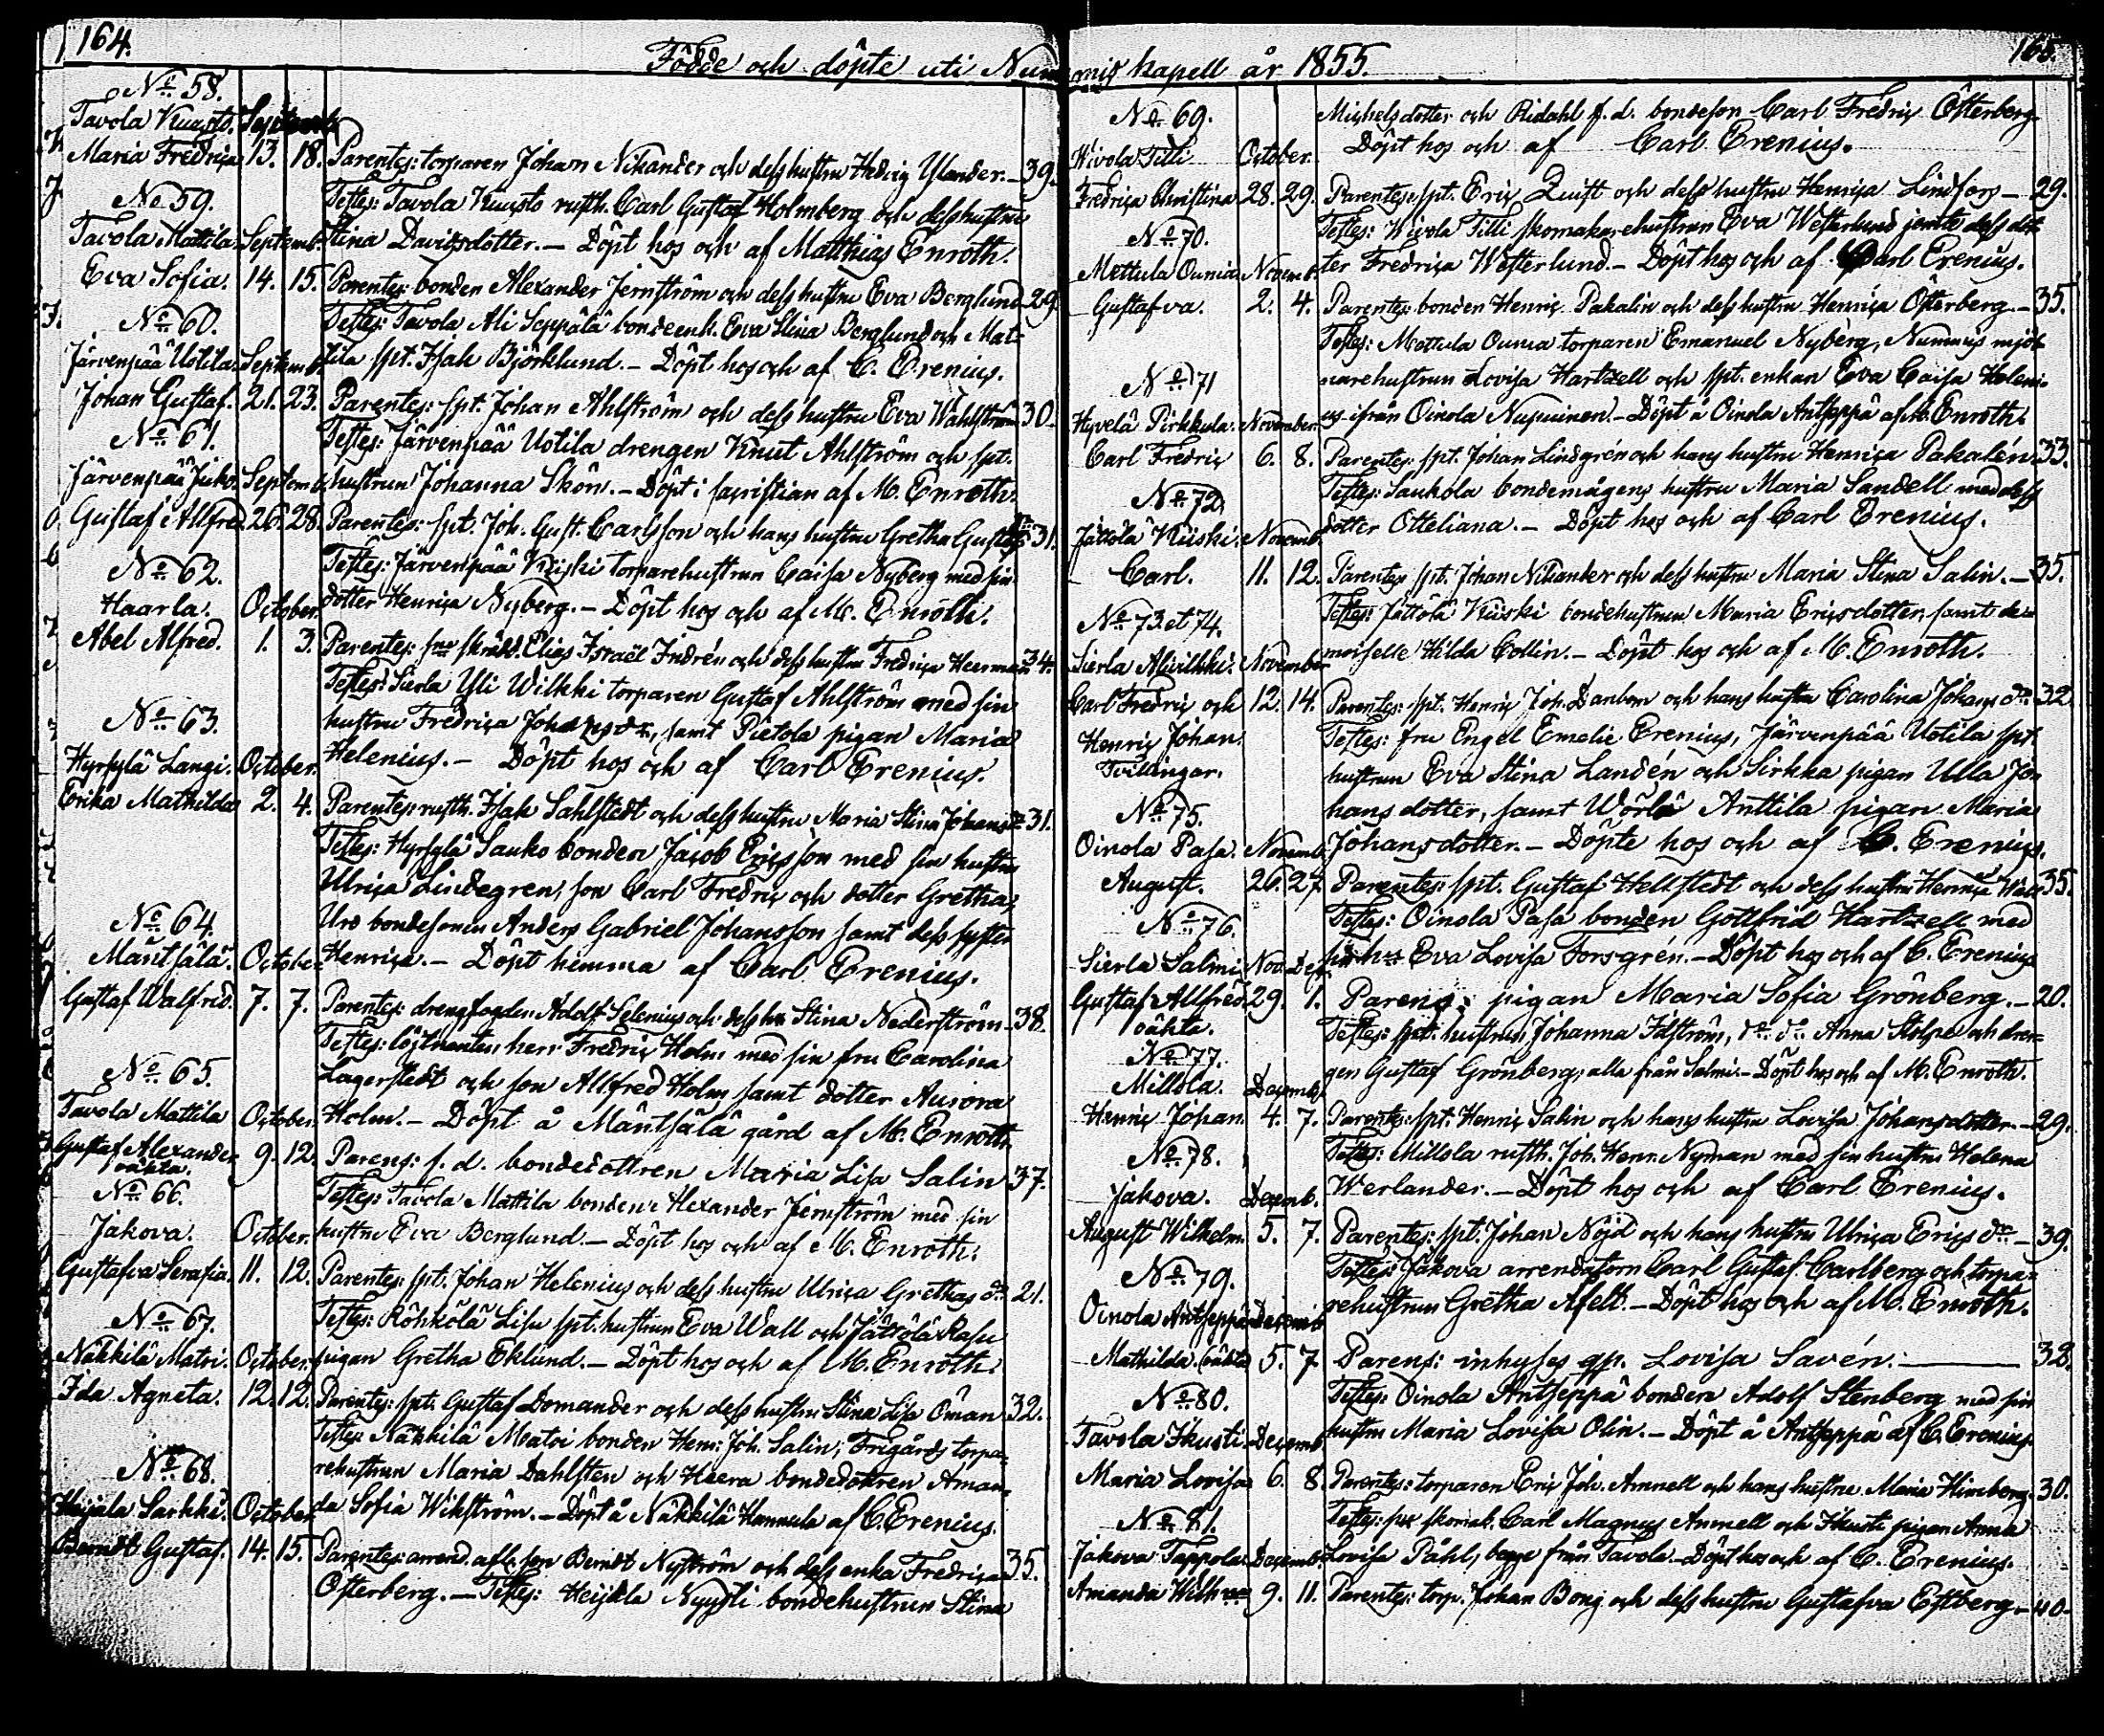 164.
Födde och döpte uti Num
No 58.
Tavola Kuusto. Septemb
Maria Fredrica 13. 18. Parentes: torparen Johan Nikander och dess hustru Hedvig Ylander. — 39.
No 59. Testes: Tavola Kuusto rusth. Carl Gustaf Holmberg och dess hustru
Tavola Mattila. Septemb. Stina Davidsdotter. — Döpt hos och af Matthias Enroth.
Eva Sofia. 14. 15. Parentes: bonden Alexander Jernström och dess hustru Eva Berglund 29.
No 60. Testes: Tavola Ali Seppälä bondeenk. Eva Stina Berglund och Mat-
Järvenpää Uotila. Septemb. tila spt. Isak Björklund. — Döpt hos och af C. Erenius.
Johan Gustaf. 21. 23. Parentes: spt. Johan Ahlström och dess hustru Eva Wahlström 30.
No 61. Testes: Järvenpää Uotila drengen Knut Ahlström och spt.
Järvenpää Juko. Septemb. hustrun Johanna Skön. — Döpt i sacristian af M. Enroth.
Gustaf Alfred 26. 28. Parentes: spt. Joh. Gust. Carlsson och hans hustru Gretha Gustafs dr 31.
No 62. Testes: Järvenpää Kiiski torparehustrun Caisa Nyberg med sin
Haarla. October. dotter Henrica Nyberg. — Döpt hos och af M. Enroth.
Abel Alfred. 1. 3. Parentes: skrädd. Elias Israël Indrén och dess hustru Fredrica Heerman 34.
Testes: Sierla Yli Wilkki torparen Gustaf Ahlström med sin
No 63. hustru Fredrica Johansdr, samt Pietola pigan Maria
Hyrsylä Langi. October. Helenius. — Döpt hos och af Carl Erenius.
Erika Mathilda 2. 4. Parentes: rusth. Isak Sahlstedt och dess hustru Maria Stina Johans dr 31.
Testes: Hyrsylä Sauko bonden Jacob Ericsson med sin hustru
Ulrica Lindegren, son Carl Fredric och dotter Gretha,
No 64. Uro bondesonen Anders Gabriel Johansson samt dess syster
Mäntsälä. October. Henrica. — Döpt hemma af Carl Erenius.
Gustaf Walfrid. 7. 7. Parentes: drengfogden Adolf Selenius och dess hu Stina Nederström — 38.
Testes: löjtnanten herr Fredric Holm med sin fru Carolina
No 65. Lagerstedt och son Allfred Holm samt dotter Aurora
Tavola Mattila October. Holm. — Döpt å Mäntsälä gård af M. Enroth.
Gustaf Alexander 9. 12. Parens: f. d. bondedottren Maria Lisa Salin 37.
oäkta.
No 66. Testes: Tavola Mattila bonden Alexander Jernström med sin
Jakova. October. hustru Eva Berglund. — Döpt hos och af M. Enroth.
Gustafva Serafia. 11. 12. Parentes: spt. Johan Helenius och dess hustru Ulrica Grethas dr 21.
No 67. Testes: Röhkölä Lisu spt. hustrun Eva Wall och Jättölä Rasu
Näkkilä Matoi. October. pigan Gretha Eklund. — Döpt hos och af M. Enroth.
Ida Agneta. 12. 12. Parentes: spt. Gustaf Domander och dess hustru Stina Lisa Öman 32.
Testes: Näkkilä Matoi bonden Henr. Joh. Salin, Frigårds torpa-
No 68. rehustrun Maria Dahlsten och Heera bondedottren Aman-
Sarkki. October. da Sofia Wikström. — Döpt å Näkkilä Hannula af C. Erenius.
Berndt Gustaf. 14. 15. Parentes: arrend. afl. son Berndt Nyström och dess enka Fredrica 35.
Österberg. — Testes: Heijala Nyysti bondehustrun Stina
165.
mis kapell år 1855.
No 69. Michelsdotter och Ridahl f. d. bondeson Carl Fredric Österberg
Wivola Titti October. Döpt hos och af Carl Erenius.
Fredrica Christina 28. 29. Parentes: spt. Eric Quist och dess hustru Henrica Lindfors — 29.
No 70. Testes: Wivola Titti skomakarehustrun Eva Westerlund jemte dess dot-
Mettula Ounia. Novemb. ter Fredrica Westerlund. — Döpt hos och af Carl Erenius.
Gustafva. 2. 4. Parentes: bonden Henric Pakalin och dess hustru Henrica Österberg. — 35.
Testes: Mettula Ounia torparen Emanuel Nyberg, Nummis mjöl-
No 71 narehustrun Lovisa Hartzell och spt. enkan Eva Caisa Heleni-
Hyvelä Pirkkula. November. us ifrån Oinola Nupuinen. — Döpt å Oinola Antseppä af M. Enroth.
Carl Fredric 6. 8. Parentes: spt. Johan Lindgrén och hans hustru Henrica Pakalén 33.
No 72. Testes: Saukola bondemågens hustru Maria Sandell med dess
Jättölä Kiiski. Novemb. dotter Otteliana. — Döpt hos och af Carl Erenius.
Carl. 11. 12. Parentes: spt. Johan Nikander och dess hustru Maria Stina Salin. — 35.
No 73. et 74. Testes: Jättölä Kiiski bondehustrun Maria Ericsdotter, samt de-
Sierla Aliwilkki. November moiselle Hilda Collin. — Döpt hos och af M. Enroth.
Carl Fredric och 12. 14. Parentes: spt. Henric Joh. Danbom och hans hustru Carolina Johans dr 32.
Henric Johan. Testes: fru Engel Emelie Erenius, Järvenpää Uotila spt.
Tvillingar. hustrun Eva Stina Landén och Sirkka pigan Ulla Jo-
No 75. hans dotter, samt Wörlä Anttila pigan Maria
Oinola Pasa. Novemb. Johansdotter. — Döpte hos och af C. Erenius.
August. 26. 27. Parentes: spt. Gustaf Hellstedt och dess hustru Henrica Wall 35.
No 76. Testes: Oinola Pasa bonden Gottfrid Hartzell med
Sierla Salmi. Nov. Dec. sin hu Eva Lovisa Forsgrén. — Döpt hos och af C. Erenius
Gustaf Allfred 29. 1. Parens: pigan Maria Sofia Grönberg. — 20.
oäkta. Testes: spt. hustrun Johanna Idström, do do Anna Stolpe och dren-
No 77. gen Gustaf Grönberg, alla från Salmi. — Döpt hos och af M. Enroth.
Millola. Decemb.
Henric Johan 4. 7. Parentes: spt. Henric Salin och hans hustru Lovisa Johansdotter. — 29.
No 78. Testes: Millola rusth. Joh. Henr. Nyman med sin hustru Helena
Jakova. Decemb. Werlander. — Döpt hos och af Carl Erenius.
August Wilhelm 5. 7. Parentes: spt. Johan Nöjd och hans hustru Ulrica Erics dr — 39.
No 79. Testes: Jakova arrendatorn Carl Gustaf Carlberg och torpa-
Oinola Antseppä Decemb rehustrun Gretha Afelt. — Döpt hos och af M. Enroth.
Mathilda. (oäkta 5. 7. Parens: inhyses qp. Lovisa Savén. — 32.
No 80. Testes: Oinola Antseppä bonden Adolf Stenberg med sin
Tavola Ikusti. Decemb. hustru Maria Lovisa Olin. — Döpt å Antseppä af C. Erenius.
Maria Lovisa 6. 8. Parentes: torparen Eric Joh. Ammell och hans hustru Maria Himberg. 30.
No 81. Testes: Carl Magnus Ammell och Ikusti pigan Anna
Jakova Tappola Decemb. Lovisa Påhl, begge från Tavola. — Döpt hos och af C. Erenius.
Amanda Wilh 9. 11. Parentes: torp. Johan Bong och dess hustru Gustafva Estberg. — 40.